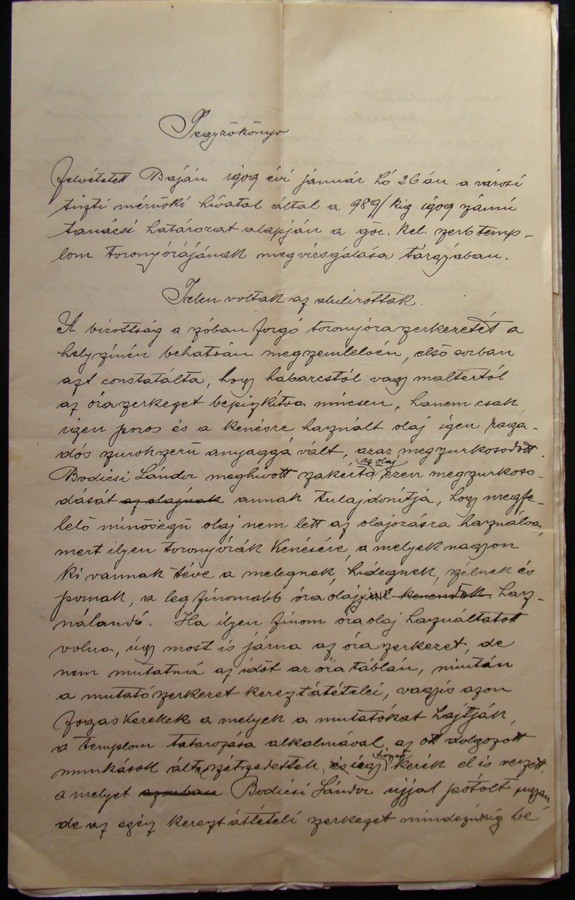 Jegyzőkönyv
Felvétetett Baján 1909 évi január hó 26 án a városi
tiszti mérnöki hivatal által a 989/kig 1909 számú
tanácsi határozat alapján a gör. kel. szerb temp-
lom toronyórájának megvizsgálása tárgyában.
Jelen voltak az alulirottak.
A bizottság a szóban forgó toronyóra szerkezetét a
helyszinén behatóan megszemlélvén, első sorban
azt constatálta, hogy habarcstól vagy maltertól
az óraszerkezet bepiszkitva nincsen, hanem csak
igen poros és a kenésre használt olaj igen raga-
dós szurokszerü anyaggá vált, azaz megszurkosodott.
Bodicsi Sándor meghivott szakértő az olaj ezen megszurkoso-
dását az olajnak annak tulajdonitja, hogy megfe-
lelő minőségü olaj nem lett az olajozásra használva,
mert ilyen toronyórák kenésére, a melyek nagyon
ki vannak téve a melegnek, hidegnek, szélnek és
pornak, a legfinomabb óra olajjal kenendők hasz-
nálandó. Ha ilyen finom óra olaj használtatott
volna, úgy most is járna az óra szerkezet, de
nem mutatná az időt az óra táblán, miután
a mutatószerkezet keresztátételei, vagyis azon
fogaskerekek a melyek a mutatókat hajtják,
a templom tatarozása alkalmával, az ott dolgozott
munkások által szétszedettek, és egy kerék el is veszett
a melyet azonban Bodicsi Sándor ujjal pótolt ugyan
de az egész keresztátételi szerkezet mindezideig bé